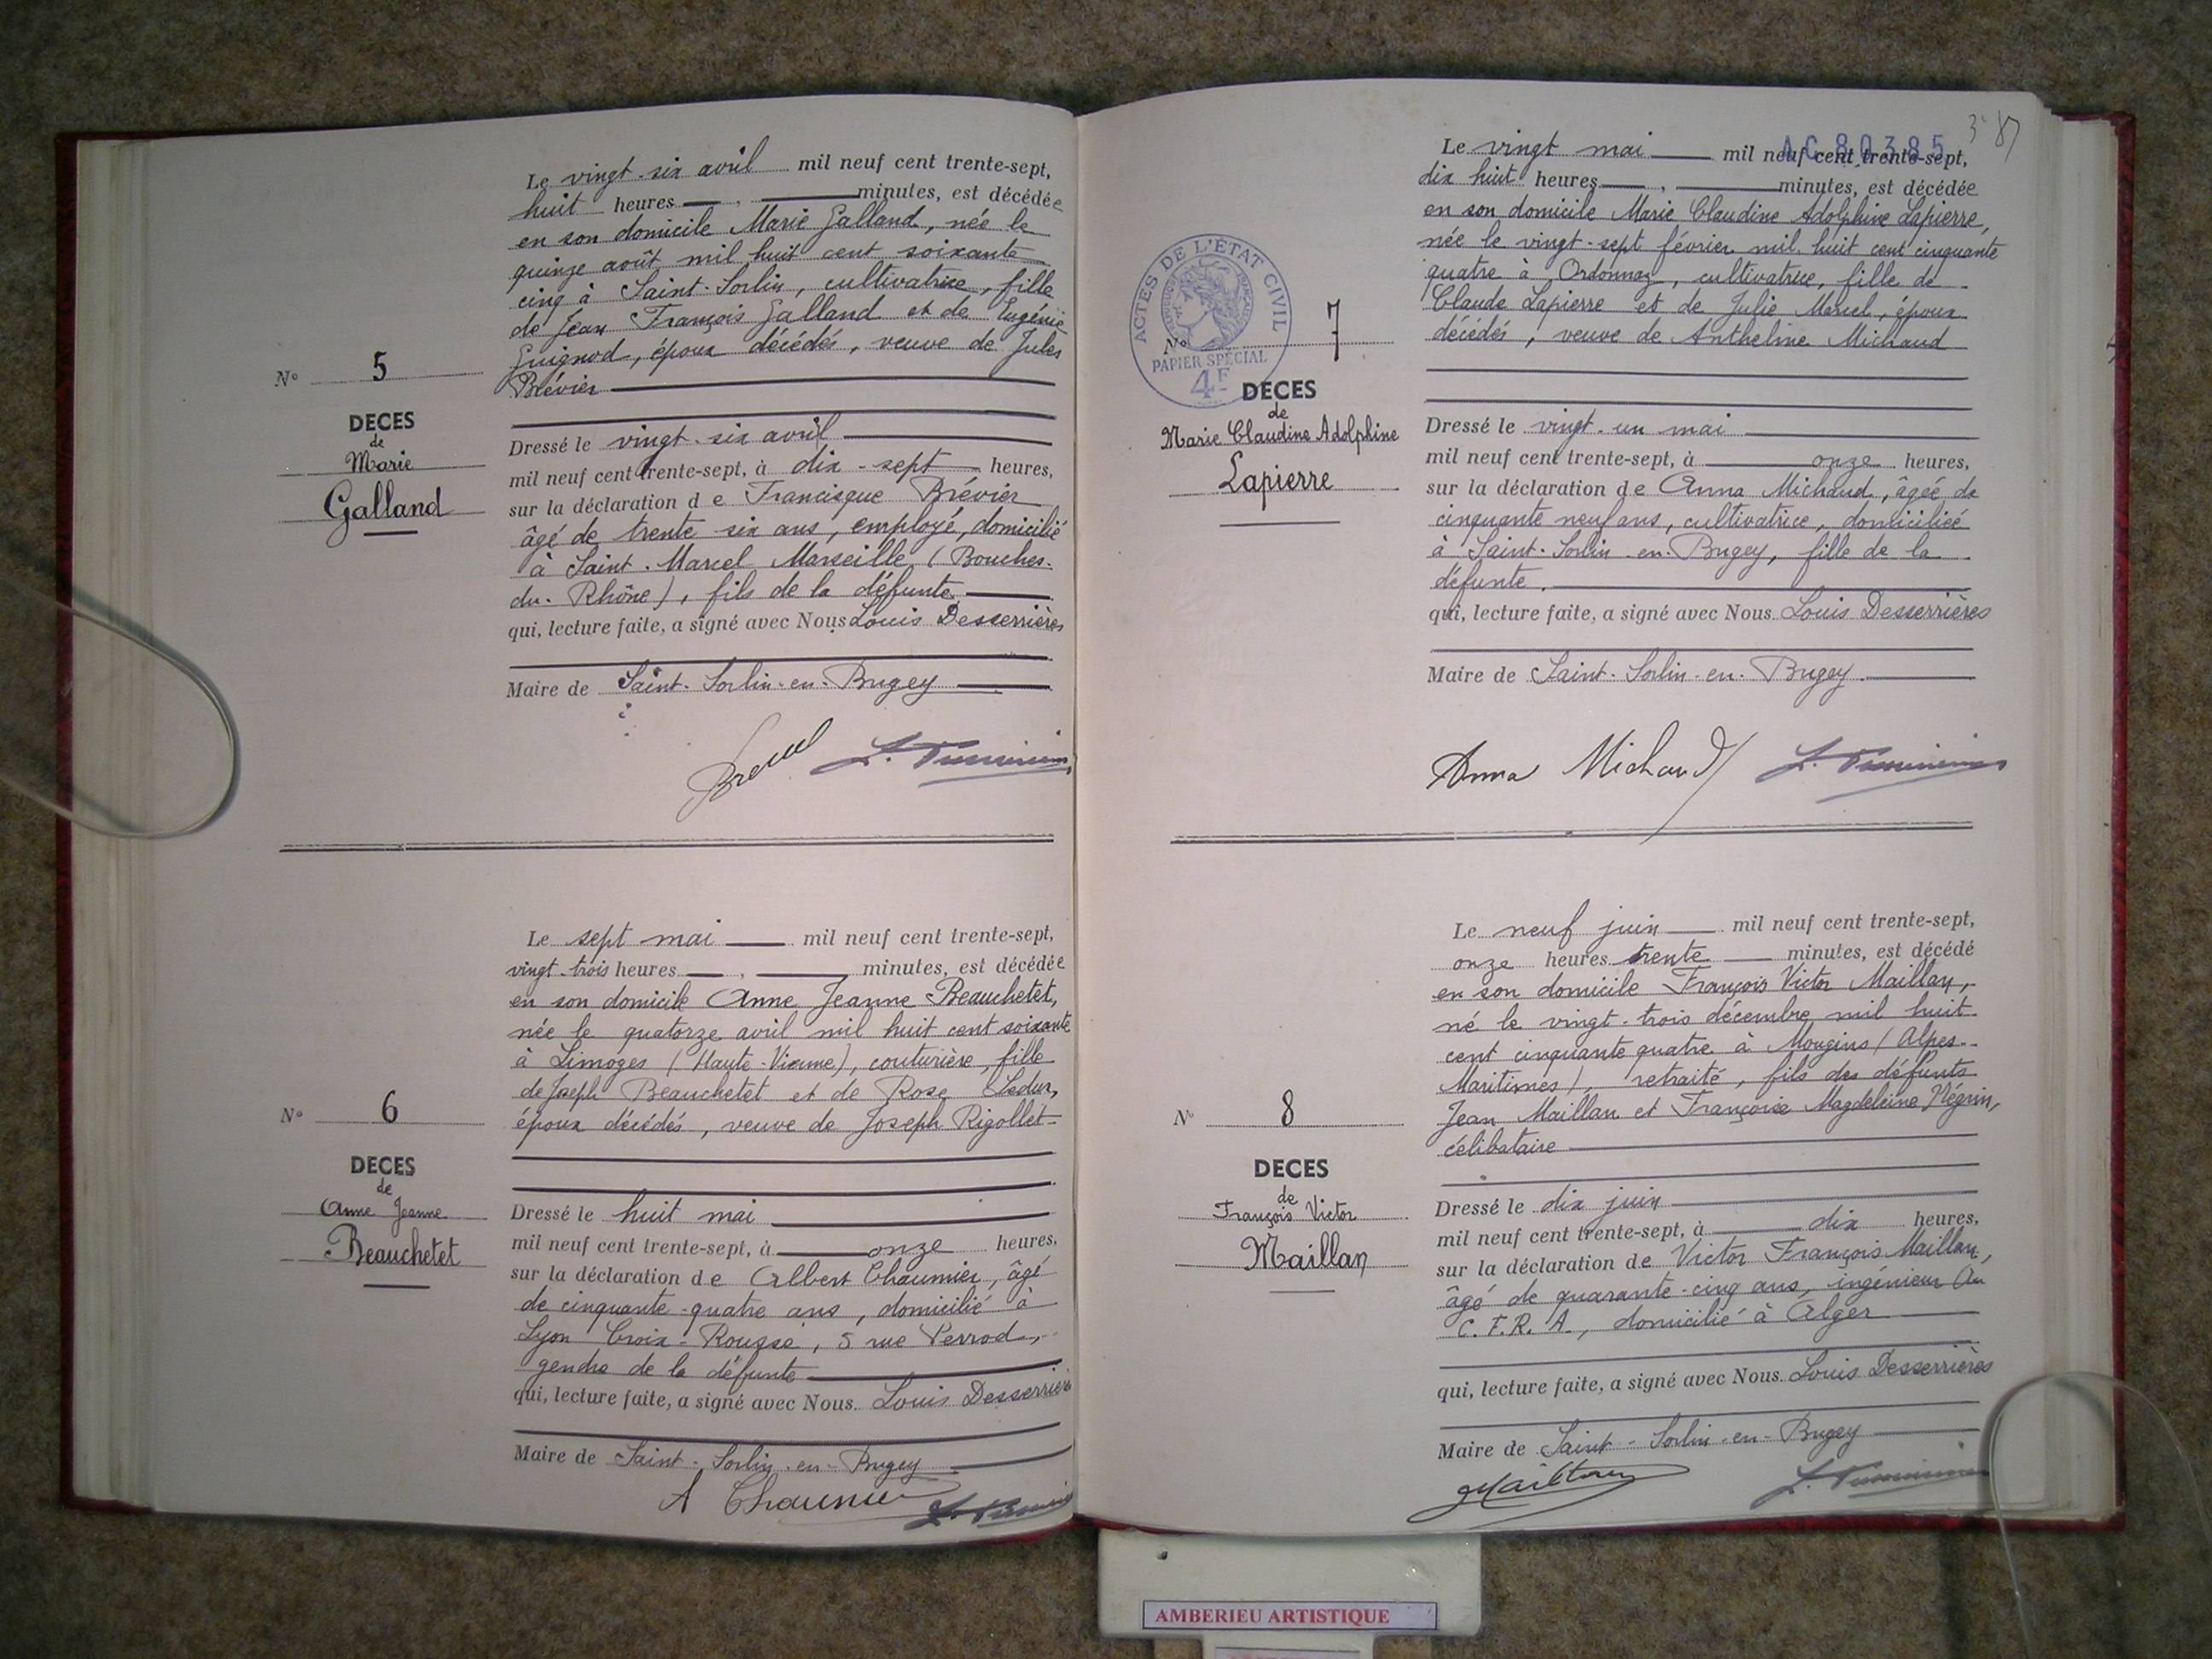 Le vingt-six avril mil neuf cent trente-sept,
huit heures , minutes, est décédée
en son domicile Marie Galland, née le
quinze août mil huit cent soixante
cinq à Saint-Sorlin, cultivatrice, fille
de Jean François Galland et de Eugénie
Guignod, époux décédés, veuve de Jules
Brévier
N° 5
DECES
de
Marie
Galland
Dressé le vingt-six avril
mil neuf cent trente-sept, à dix-sept heures,
sur la déclaration de Francisque Brévier
âgé de trente six ans, employé, domicilié
à Saint-Marcel Marseille (Bouches-
du-Rhône), fils de la défunte
qui, lecture faite, a signé avec Nous Louis Desserrières
Maire de Saint-Sorlin-en-Bugey
Le sept mai mil neuf cent trente-sept,
vingt-trois heures , minutes, est décédée
en son domicile Anne Jeanne Beauchetet,
née le quatorze avril mil huit cent soixante
à Limoges (Haute-Vienne), couturière, fille
de Joseph Beauchetet et de Rose Ledur,
époux décédés, veuve de Joseph Rigollet
N° 6
DECES
de
Anne Jeanne
Beauchetet
Dressé le huit mai
mil neuf cent trente-sept, à onze heures,
sur la déclaration de Albert Chaumier, âgé
de cinquante-quatre ans, domicilié à
Lyon Croix-Rousse, 5 rue Perrod,
gendre de la défunte
qui, lecture faite, a signé avec Nous Louis Desserrières
Maire de Saint-Sorlin-en-Bugey
A Chaumier
AC 80385
87
Le vingt mai mil neuf cent trente-sept,
dix huit heures , minutes, est décédée
en son domicile Marie Claudine Adolphine Lapierre,
née le vingt-sept février mil huit cent cinquante
quatre à Ordonnaz, cultivatrice, fille de
Claude Lapierre et de Julie Marcel, époux
décédés, veuve de Anthelme Michaud
ACTES DE L'ETAT CIVIL
PAPIER SPÉCIAL
4F
N° 7
DECES
de
Marie Claudine Adolphine
Lapierre
Dressé le vingt-un mai
mil neuf cent trente-sept, à onze heures,
sur la déclaration de Anna Michaud, âgée de
cinquante neuf ans, cultivatrice, domiciliée
à Saint-Sorlin-en-Bugey, fille de la
défunte.
qui, lecture faite, a signé avec Nous Louis Desserrières
Maire de Saint-Sorlin-en-Bugey
Anna Michaud
Le neuf juin mil neuf cent trente-sept,
onze heures trente minutes, est décédé
en son domicile François Victor Maillan,
né le vingt-trois décembre mil huit
cent cinquante quatre à Mougins (Alpes-
Maritimes), retraité, fils des défunts
Jean Maillan et Françoise Magdeleine Négrin,
célibataire
N° 8
DECES
de
François Victor
Maillan
Dressé le dix juin
mil neuf cent trente-sept, à dix heures,
sur la déclaration de Victor François Maillan,
âgé de quarante-cinq ans, ingénieur au
C.F.R.A., domicilié à Alger
qui, lecture faite, a signé avec Nous Louis Desserrières
Maire de Saint-Sorlin-en-Bugey
Maillan
AMBERIEU ARTISTIQUE